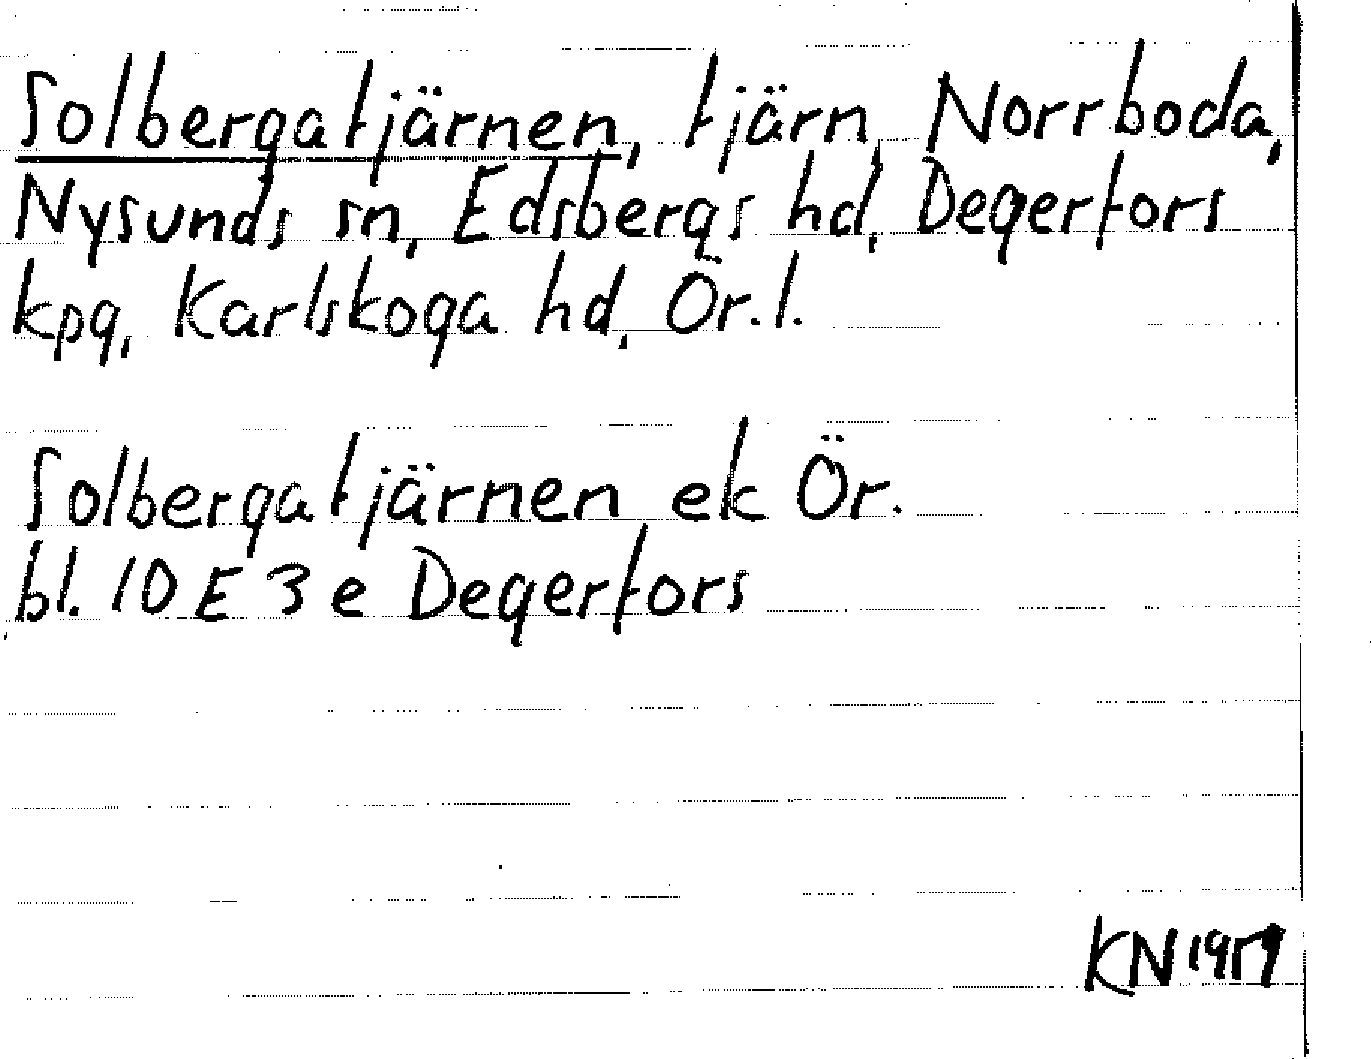 Solbergatjärnen, tjärn, Norrboda,
Nysunds sn, Edsbergs hd, Degerfors
kpg, Karlskoga hd, Ör.l.
Solbergatjärnen ek Ör.
bl. 10 E 3 e Degerfors
KN